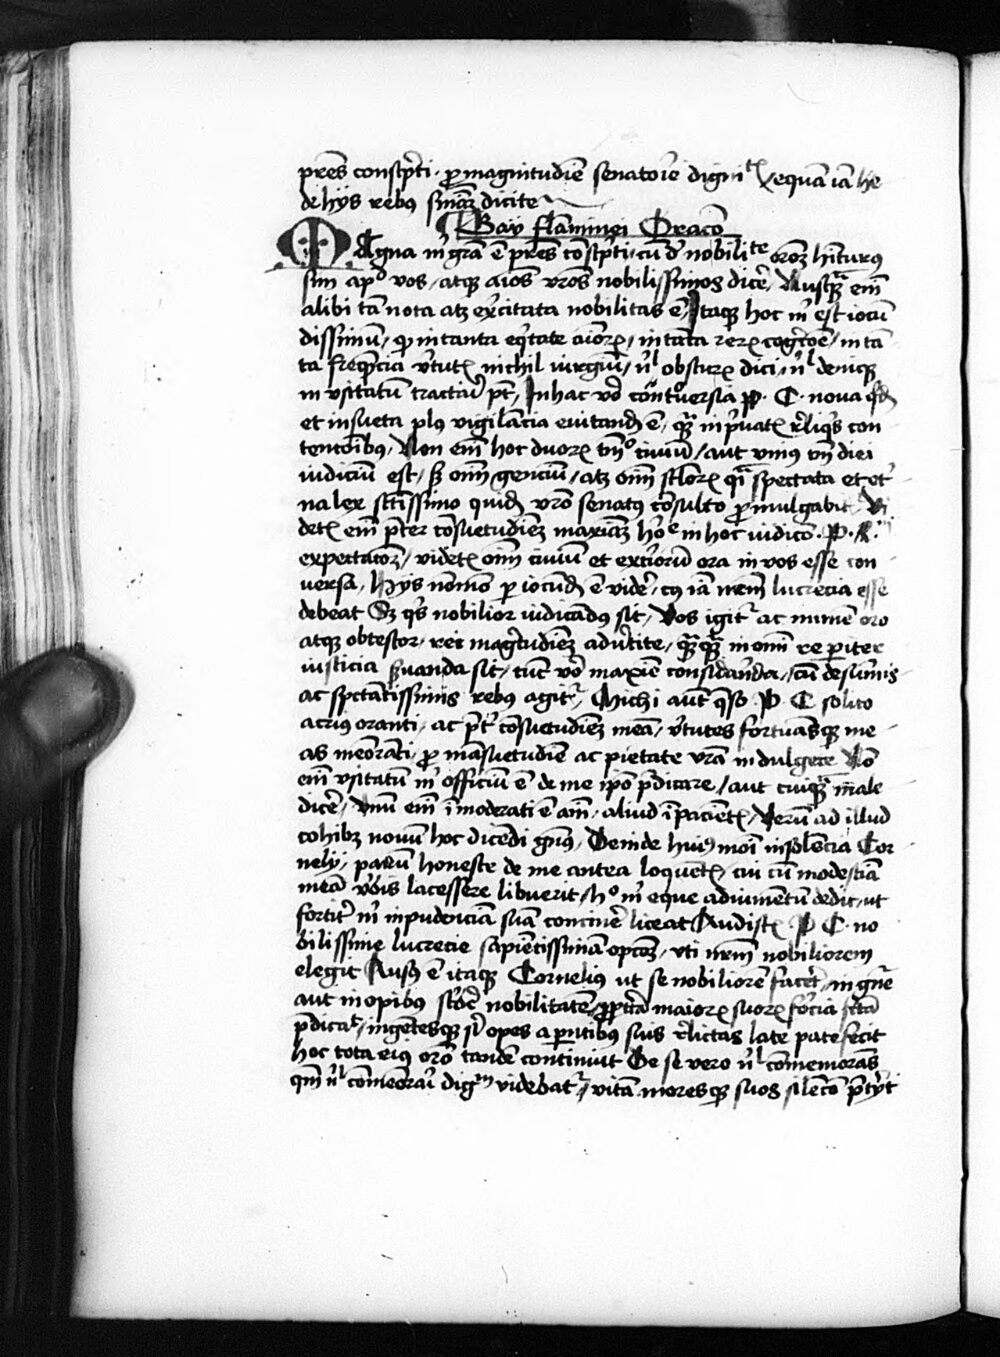 pres conscpti · p magnitudie senatorie dignitt equa ia he
de hijs rebus smaz dicite
Gaij flaminei Oraco
Magna m gra e pres conscpti · cu d nobilite oroz hiturus
sim apd vos / atqz aios vros nobilissimos dice / Nusqz em
alibi ta nota atz excitata nobilitas e / Itaqz hoc m est iocun
dissimu / qp in tanta eqtate aiorz / in tata rerz cogcoe / in tan
ta frequecia vtutz nichil iurgiu / nl obscurz dici / nl deniqz
inusitatu tractai pt / In hac vo contuersia pp · C · nova qd
et insueta plus vigilacia euitand e / qz in puatz rliqs con
tentoibus / Non em hoc duorz tmo ciuiu / aut unius tm diei
iudiciu est / sz oim genciu / atz oim sclorz qi spectata et et
na lex sctissimo quid vro senatus consulto pmulgabit · Vi
detz em pter consuetudiez maxiaz hoe in hoc iudico · P · R ·
expectacoz / videtz oim ciuiu et exterioru ora in vos esse con
uersa / Hijs nomo p iocund e vide / cus ia nrm lucrecia esse
debeat Sz qs nobilior iudicadus sit / Vos igit ac nume oro
atqz obtestor · rei magtudiez aduertite / qzqz in omi re pariter
iusticia suanda sit / tuc vo maxie considanda / cu de sumis
ac spectatissimis rebus agit / Michi aut qso P C solito
acrius oranti / ac pt consuetudiez mea / vtutes fortunasqz me
as meorati / p masuetudie ac pietate vra indulgete No
em usitatu m officiu e de me ipo pdicare / aut cuiqz male
dice / Unu em imoderati e ami / aliud ipacientz / Verum ad illud
cohibz nouu hoc dicedi gnus / Deinde huius moi insolecia Cor
nelij / paru honeste de me antea loquetz / cui cu modestia
mea vbis lacessere libuerit / ho m eque adiumentu dedit / ut
fortit m inpudencia sua contine liceat Audistz P C · no
bilissime lucrecie sapietissima opcoz / uti nrm nobiliorem
elegit Ausus e itaqz Cornelius ut se nobiliore facet / in gne
aut in opibus scde nobilitate / ppta maiorz suorz forcia fcta
pdicat / ingetesqz si opes a pntibus suis rlictas late patefecit
hoc tota eius oro tande continuit De se vero nl comemoras
qm nl comeorai digm videbat / vita moresqz suos silecio pteriit